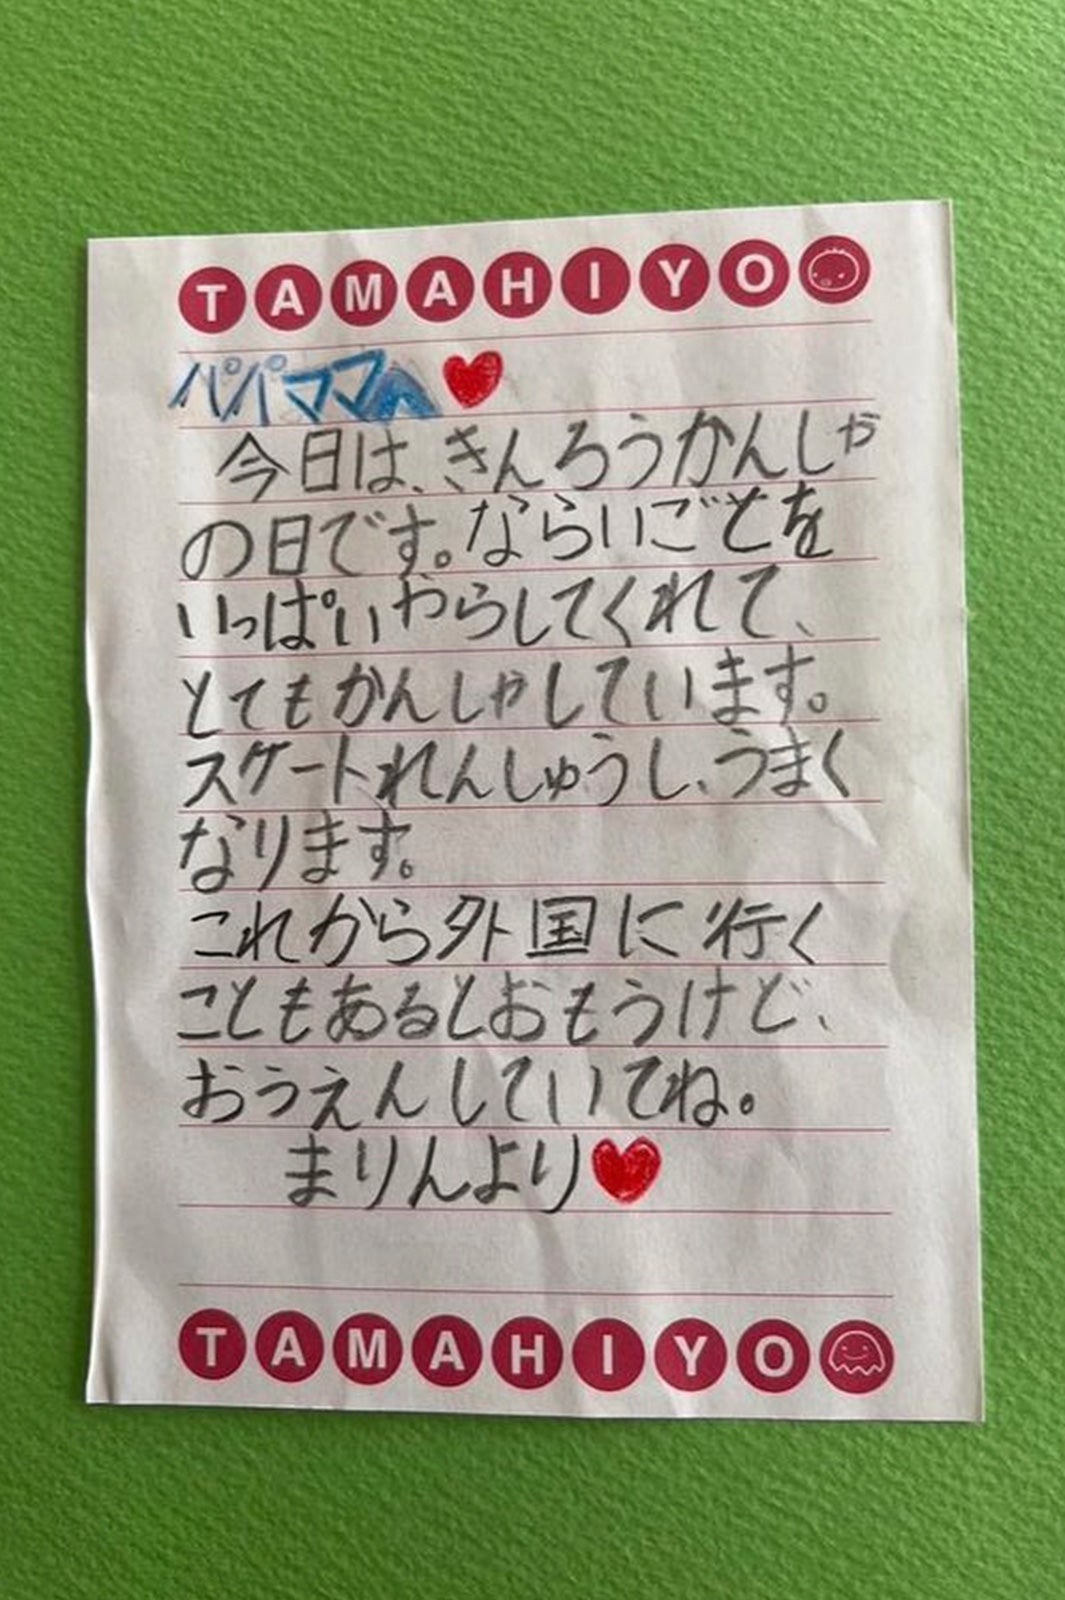 TAMAHIYO
パパママへ♥
今日は、きんろうかんしゃ
の日です。ならいごとを
いっぱいやらしてくれて、
とてもかんしゃしています。
スケートれんしゅうし、うまく
なります。
これから外国に行く
こともあるとおもうけど、
おうえんしていてね。
まりんより♥
TAMAHIYO